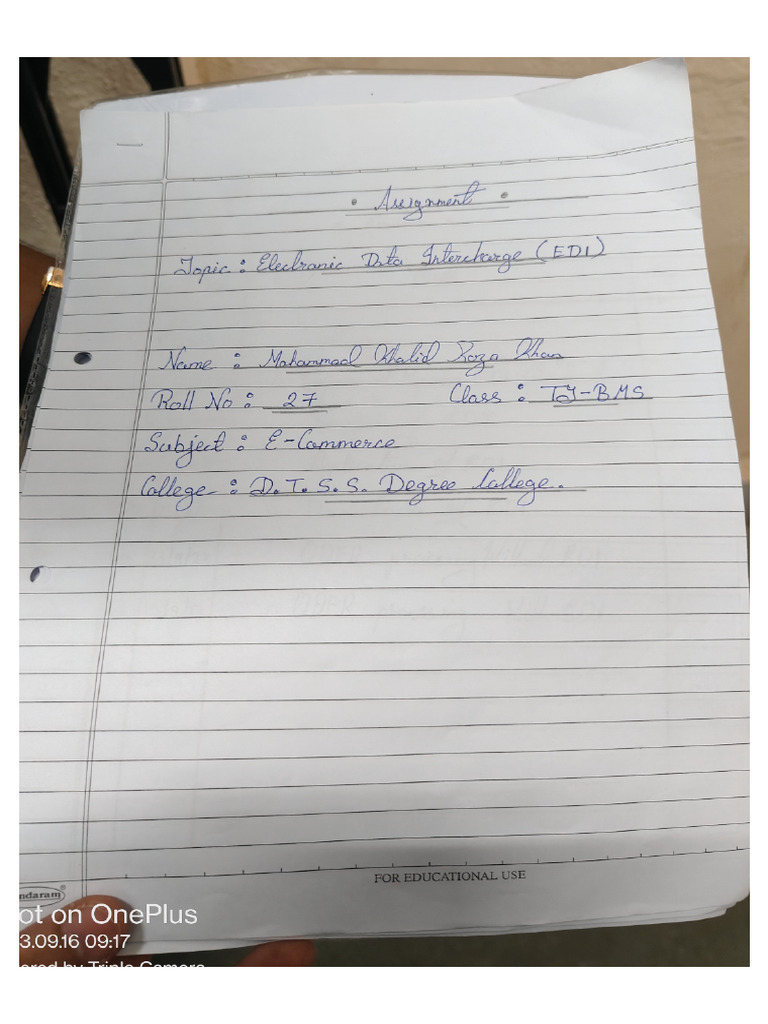 • Assignment •
Topic : Electronic Data Interchange (EDI)
Name : Mohammad Khalid Roza Khan
Roll No : 27 Class : TY-BMS
Subject : E-Commerce
College : D.T.S.S. Degree College.
FOR EDUCATIONAL USE
ndaram®
ot on OnePlus
3.09.16 09:17
ered by Triple Camera